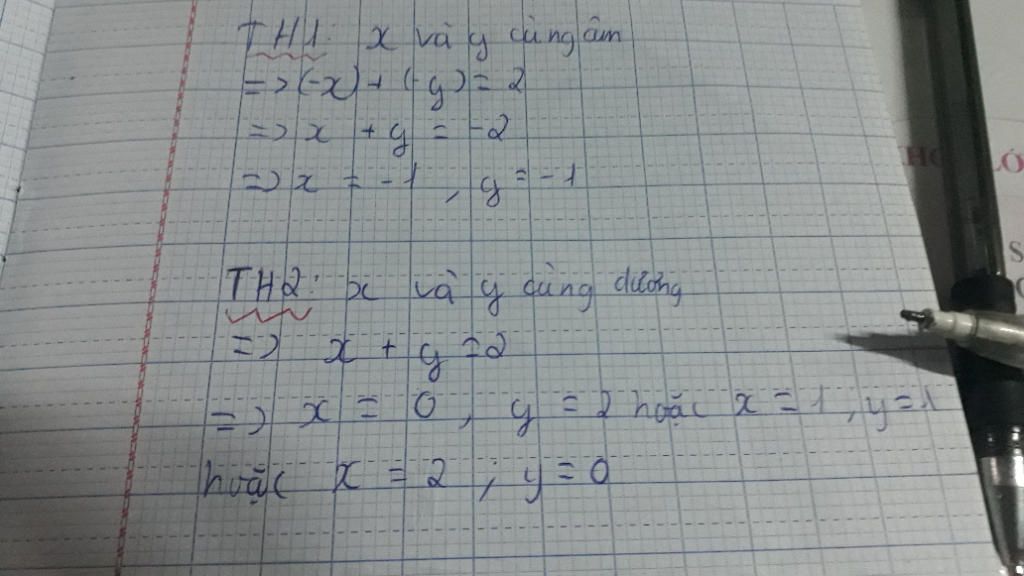 TH1: x và y cùng âm
=> (-x) + (-y) = 2
=> x + y = -2
=> x = -1 , y = -1
TH2: x và y cùng dương
=> x + y = 2
=> x = 0, y = 2 hoặc x = 1, y = 1
hoặc x = 2 ; y = 0